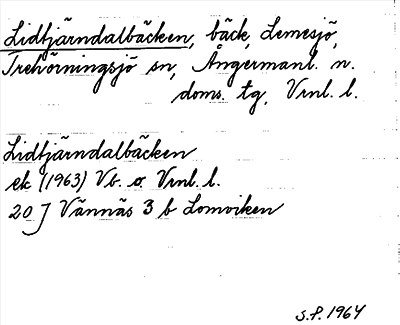 Lidtjärndalbäcken, bäck, Lemesjö,
Trehörningsjö sn, Ångermanl. n.
doms. tg, Vrnl. l.
Lidtjärndalbäcken
ek (1963) Vb. o. Vrnl. l.
20 J Vännäs 3 b Lomviken
S.P. 1964